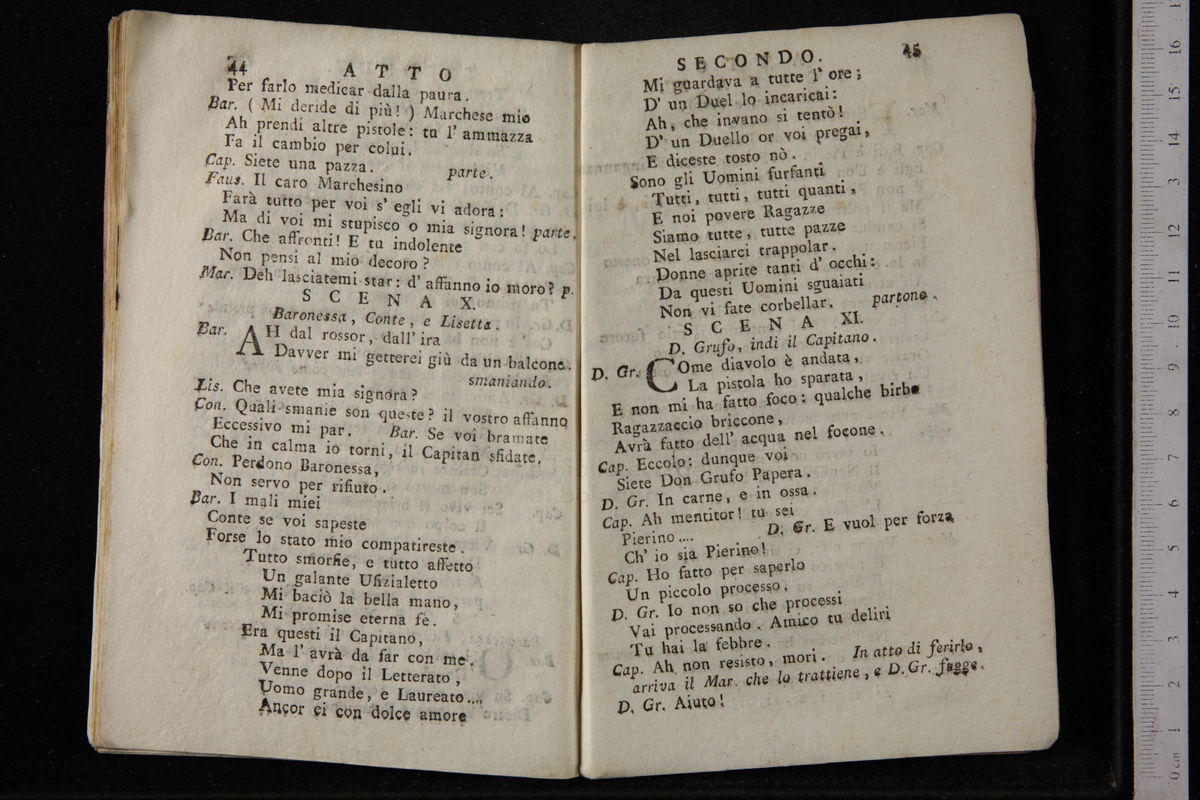 44 ATTO
Per farlo medicar dalla paura.
Bar. ( Mi deride di più! ) Marchese mio
Ah prendi altre pistole: tu l' ammazza
Fa il cambio per colui.
Cap. Siete una pazza. parte.
Faus. Il caro Marchesino
Farà tutto per voi s' egli vi adora:
Ma di voi mi stupisco o mia signora! parte.
Bar. Che affronti! E tu indolente
Non pensi al mio decoro?
Mar. Deh lasciatemi star: d' affanno io moro? p.
SCENA X.
Baronessa, Conte, e Lisetta.
Bar. AH dal rossor, dall' ira
Davver mi getterei giù da un balcone.
smaniando.
Lis. Che avete mia signora?
Con. Quali smanie son queste? il vostro affanno
Eccessivo mi par. Bar. Se voi bramate
Che in calma io torni, il Capitan sfidate.
Con. Perdono Baronessa,
Non servo per rifiuto.
Bar. I mali miei
Conte se voi sapeste
Forse lo stato mio compatireste.
Tutto smorfie, e tutto affetto
Un galante Ufizialetto
Mi baciò la bella mano,
Mi promise eterna fè.
Era questi il Capitano,
Ma l' avrà da far con me.
Venne dopo il Letterato,
Uomo grande, e Laureato....
Ancor ei con dolce amore
SECONDO. 45
Mi guardava a tutte l' ore;
D' un Duel lo incaricai:
Ah, che invano si tentò!
D' un Duello or voi pregai,
E diceste tosto nò.
Sono gli Uomini furfanti
Tutti, tutti, tutti quanti,
E noi povere Ragazze
Siamo tutte, tutte pazze
Nel lasciarci trappolar.
Donne aprite tanti d' occhi:
Da questi Uomini sguaiati
Non vi fate corbellar. partono.
SCENA XI.
D. Grufo, indi il Capitano.
D. Gr. COme diavolo è andata,
La pistola ho sparata,
E non mi ha fatto foco: qualche birbo
Ragazzaccio briccone,
Avrà fatto dell' acqua nel focone.
Cap. Eccolo: dunque voi
Siete Don Grufo Papera.
D. Gr. In carne, e in ossa.
Cap. Ah mentitor! tu sei
Pierino.... D. Gr. E vuol per forza
Ch' io sia Pierino!
Cap. Ho fatto per saperlo
Un piccolo processo.
D. Gr. Io non so che processi
Vai processando. Amico tu deliri
Tu hai la febbre.
Cap. Ah non resisto, mori. In atto di ferirlo,
arriva il Mar. che lo trattiene, e D. Gr. fugge.
D. Gr. Aiuto!